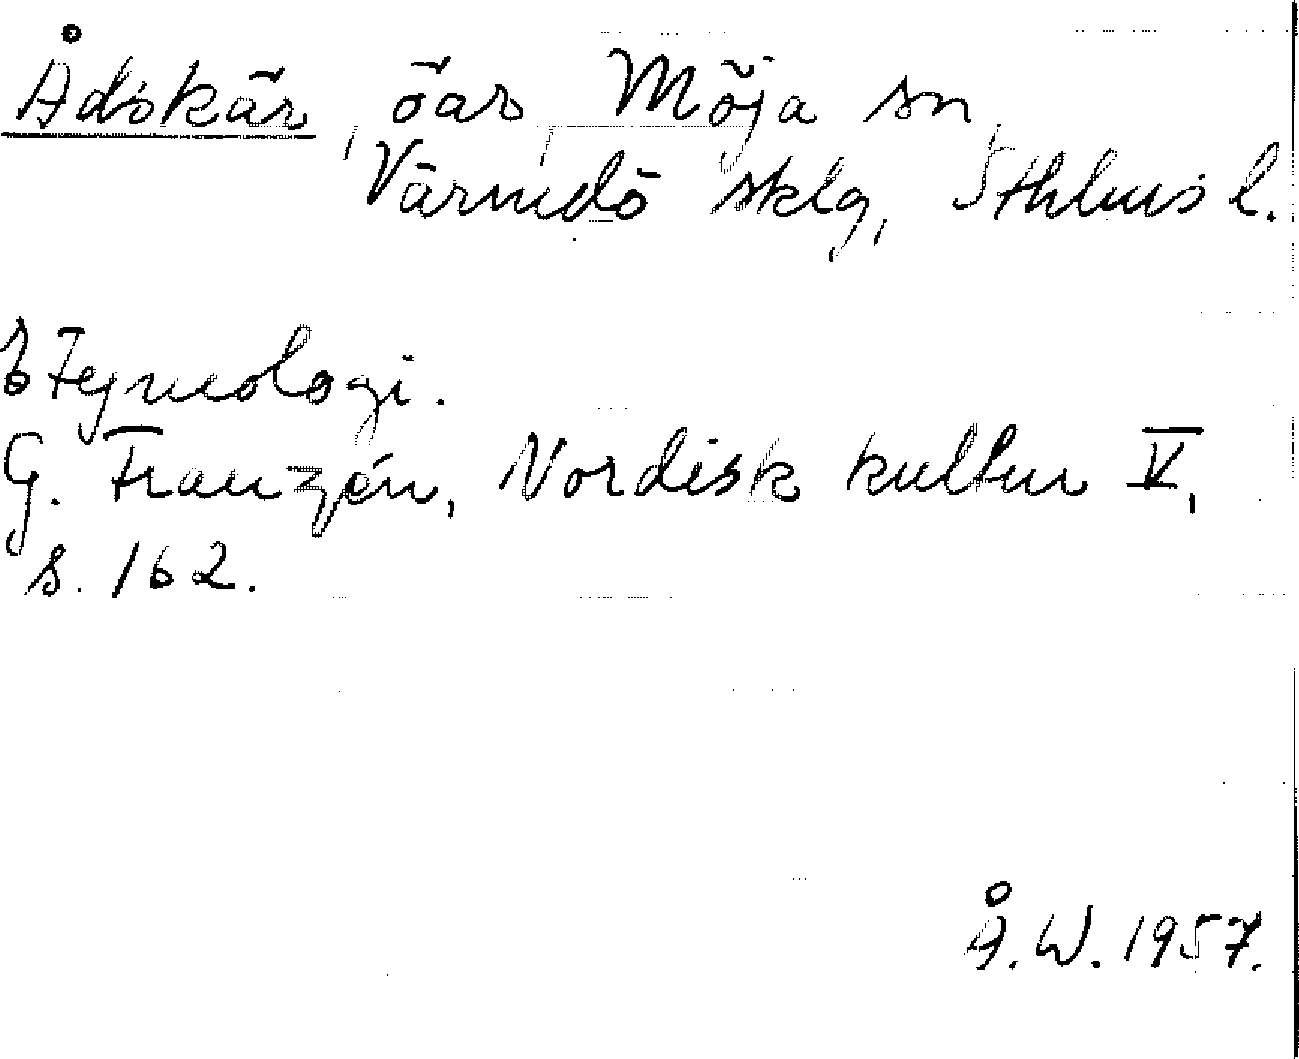 Ådskär, öar, Möja sn,
Värmdö sklg, Sthlms l.
Etymologi.
G. Franzén, Nordisk kultur V,
s. 162.
Å.W. 1957.